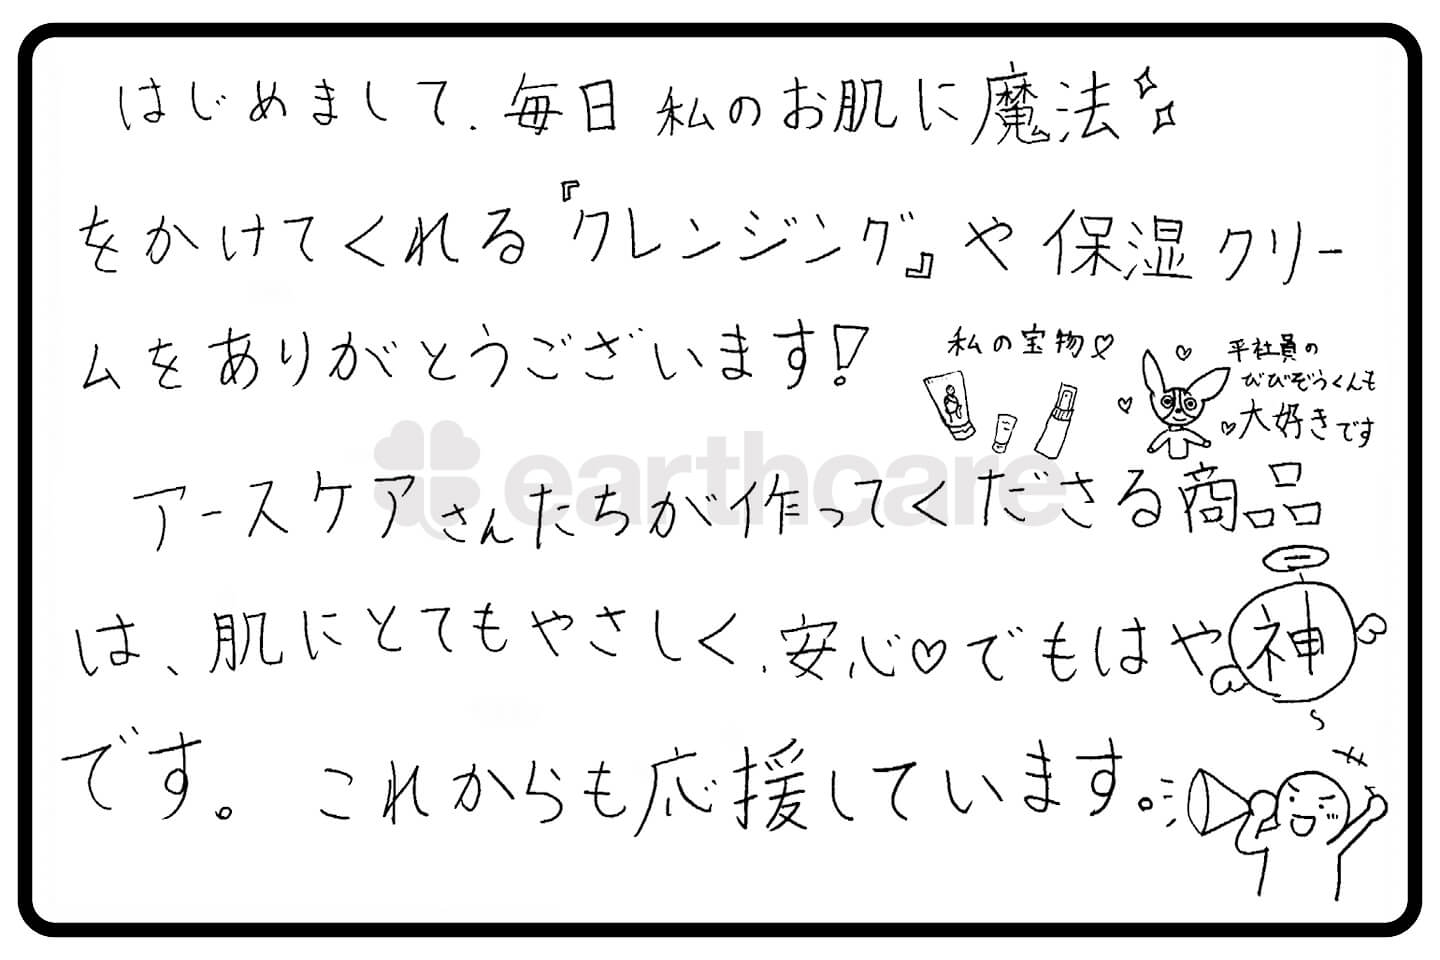 はじめまして、毎日 私のお肌に魔法
をかけてくれる『クレンジング』や保湿クリー
ムをありがとうございます!
私の宝物♡
平社員の
びびぞうくんも
大好きです
earthcare
アースケアさんたちが作ってくださる商品
は、肌にとてもやさしく、安心♡でもはや神
です。これからも応援しています。